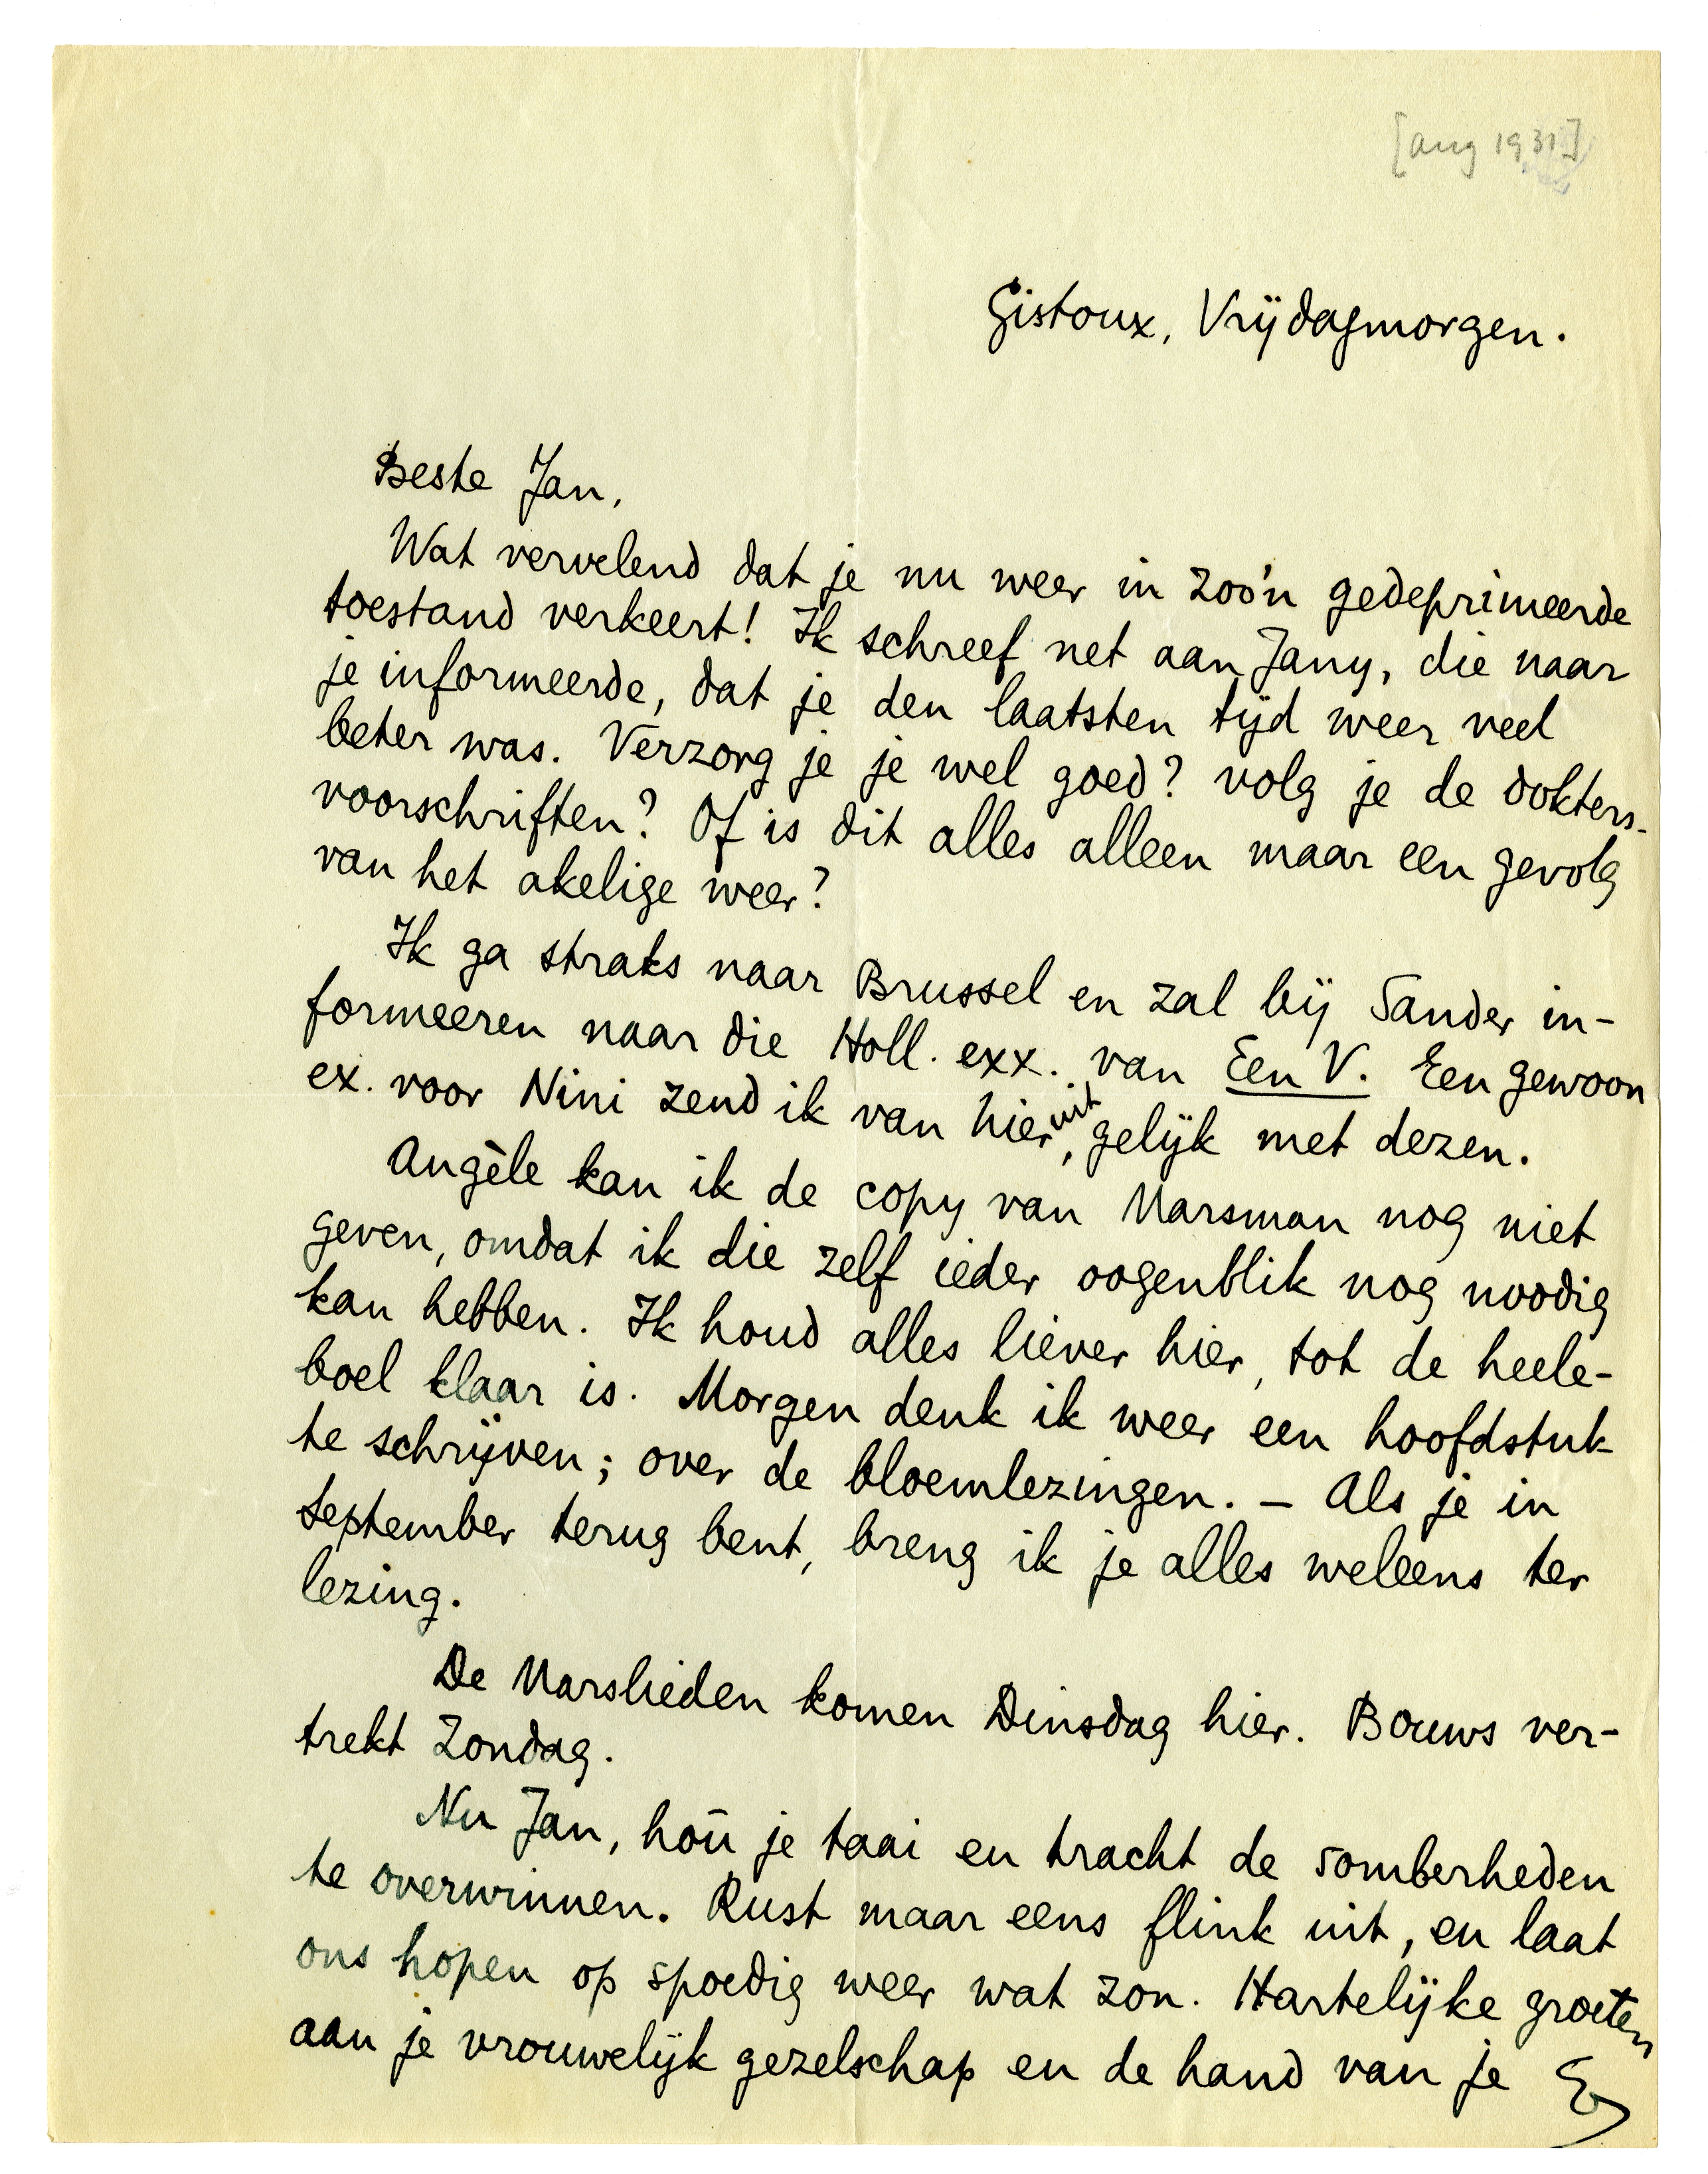 [aug 1931]
Gistoux, Vrijdagmorgen.
Beste Jan,
Wat vervelend dat je nu weer in zoo'n gedeprimeerde
toestand verkeert! Ik schreef net aan Jany, die naar
je informeerde, dat je den laatsten tijd weer veel
beter was. Verzorg je je wel goed? volg je de dokters-
voorschriften? Of is dit alles alleen maar een gevolg
van het akelige weer?
Ik ga straks naar Brussel en zal bij Sander in-
formeeren naar die Holl. exx. van Een V. Een gewoon
ex. voor Nini zend ik van hier uit, gelijk met dezen.
Angèle kan ik de copy van Marsman nog niet
geven, omdat ik die zelf ieder oogenblik nog noodig
kan hebben. Ik houd alles liever hier, tot de heele-
boel klaar is. Morgen denk ik weer een hoofdstuk
te schrijven; over de bloemlezingen. – Als je in
September terug bent, breng ik je alles weleens ter
lezing.
De Marslieden komen Dinsdag hier. Bouws ver-
trekt Zondag.
Nu Jan, hoū je taai en tracht de somberheden
te overwinnen. Rust maar eens flink uit, en laat
ons hopen op spoedig weer wat zon. Hartelijke groeten
aan je vrouwelijk gezelschap en de hand van je E